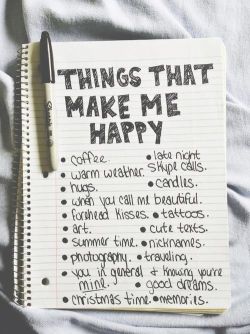 THINGS THAT
MAKE ME
HAPPY
• coffee. • late night
skype calls.
• warm weather.
• hugs. • candles.
• when you call me beautiful.
• forehead kisses. • tattoos.
• art. • cute texts.
• summer time. • nicknames.
• photography. • traveling.
• you in general & knowing you're
mine. • good dreams.
• christmas time. • memories.